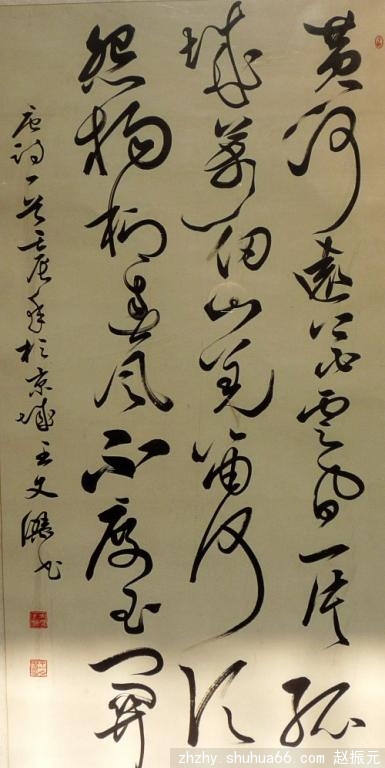 黄河遠上白雲間一片孤
城萬仞山羌笛何須
怨楊柳春风不度玉門關
唐詩一首壬辰年於京城王文书
zhzhy.shuhua66.com 赵振元